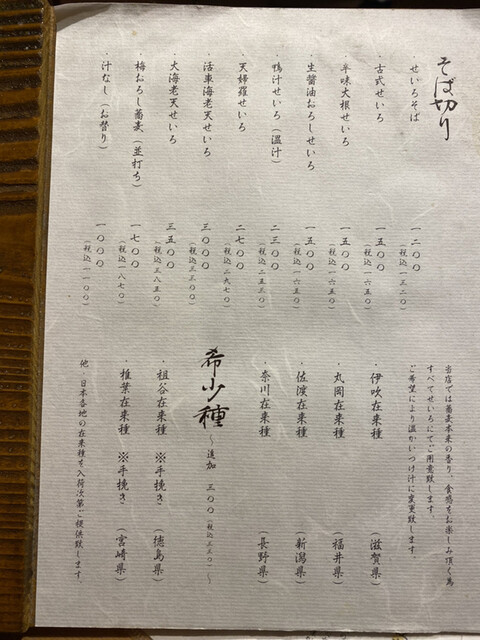 そば切り
・せいろそば 一二〇〇 (税込一三二〇)
・古式せいろ 一五〇〇 (税込一六五〇)
・辛味大根せいろ 一五〇〇 (税込一六五〇)
・生醤油おろしせいろ 一五〇〇 (税込一六五〇)
・鴨汁せいろ(温汁) 二三〇〇 (税込二五三〇)
・天婦羅せいろ 二七〇〇 (税込二九七〇)
・活車海老天せいろ 三〇〇〇 (税込三三〇〇)
・大海老天せいろ 三五〇〇 (税込三八五〇)
・梅おろし蕎麦(並打ち) 一七〇〇 (税込一八七〇)
・汁なし(お替り) 一〇〇〇 (税込一一〇〇)
当店では蕎麦本来の香り、食感をお楽しみ頂く為
すべてせいろにてご用意致します。
ご希望により温かいつけ汁に変更致します。
・伊吹在来種 (滋賀県)
・丸岡在来種 (福井県)
・佐渡在来種 (新潟県)
・奈川在来種 (長野県)
希少種 〜追加 三〇〇(税込三三〇)〜
・祖谷在来種 ※手挽き (徳島県)
・椎葉在来種 ※手挽き (宮崎県)
他、日本各地の在来種を入荷次第ご提供致します。